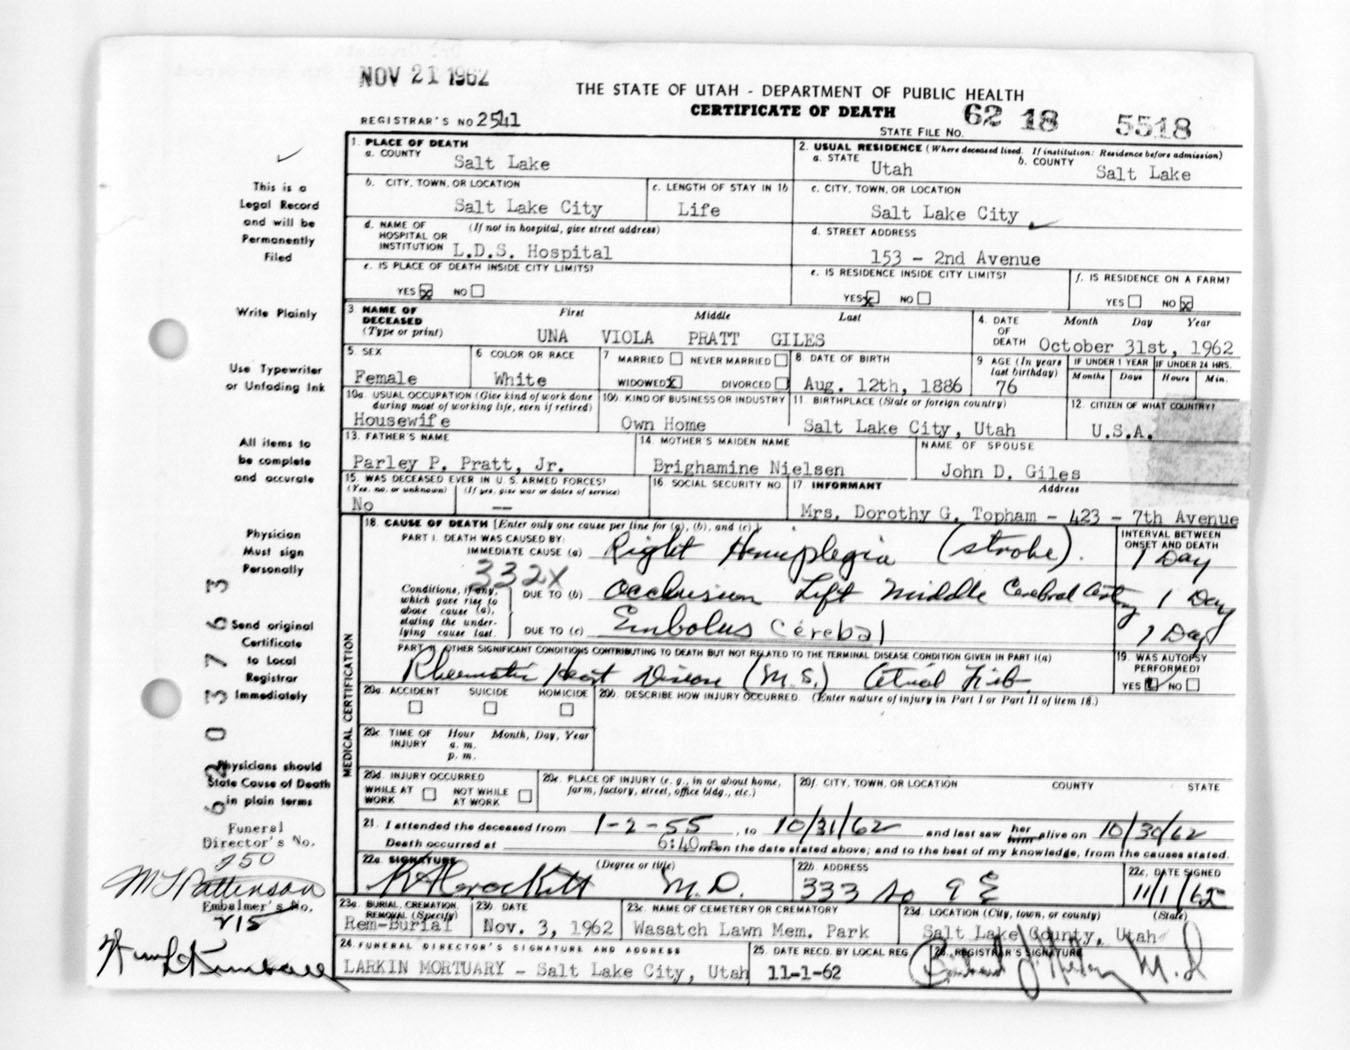 NOV 21 1962
THE STATE OF UTAH - DEPARTMENT OF PUBLIC HEALTH
CERTIFICATE OF DEATH
REGISTRAR'S NO 2541
STATE FILE NO. 62 18 5518
1. PLACE OF DEATH
a. COUNTY Salt Lake
2. USUAL RESIDENCE (Where deceased lived. If institution: Residence before admission)
a. STATE Utah
b. COUNTY Salt Lake
b. CITY, TOWN, OR LOCATION Salt Lake City
c. LENGTH OF STAY IN 1b Life
c. CITY, TOWN, OR LOCATION Salt Lake City
d. NAME OF HOSPITAL OR INSTITUTION (If not in hospital, give street address) L.D.S. Hospital
d. STREET ADDRESS 153 - 2nd Avenue
e. IS PLACE OF DEATH INSIDE CITY LIMITS?
YES x NO
e. IS RESIDENCE INSIDE CITY LIMITS?
YES x NO
f. IS RESIDENCE ON A FARM?
YES NO x
3. NAME OF DECEASED (Type or print)
First Middle Last
UNA VIOLA PRATT GILES
4. DATE OF DEATH Month Day Year
October 31st, 1962
5. SEX Female
6 COLOR OR RACE White
7 MARRIED NEVER MARRIED
WIDOWED x DIVORCED
8 DATE OF BIRTH Aug. 12th, 1886
9 AGE (In years last birthday) 76
IF UNDER 1 YEAR Months Days
IF UNDER 24 HRS. Hours Min.
10a. USUAL OCCUPATION (Give kind of work done during most of working life, even if retired) Housewife
10b. KIND OF BUSINESS OR INDUSTRY Own Home
11 BIRTHPLACE (State or foreign country) Salt Lake City, Utah
12. CITIZEN OF WHAT COUNTRY? U.S.A.
13. FATHER'S NAME Parley P. Pratt, Jr.
14. MOTHER'S MAIDEN NAME Brighamine Nielsen
NAME OF SPOUSE John D. Giles
15. WAS DECEASED EVER IN U.S. ARMED FORCES?
(Yes, no, or unknown) (If yes, give war or dates of service)
No --
16 SOCIAL SECURITY NO
17 INFORMANT Address
Mrs. Dorothy G. Topham - 423 - 7th Avenue
MEDICAL CERTIFICATION
18. CAUSE OF DEATH [Enter only one cause per line for (a), (b), and (c).]
PART I. DEATH WAS CAUSED BY:
IMMEDIATE CAUSE (a) Right Hemiplegia (stroke).
INTERVAL BETWEEN ONSET AND DEATH
1 Day
332X
Conditions, if any, which gave rise to above cause (a), stating the underlying cause last.
DUE TO (b) Occlusion Left middle Cerebral Artery 1 Day
DUE TO (c) Embolus Cerebal 1 Day
PART II OTHER SIGNIFICANT CONDITIONS CONTRIBUTING TO DEATH BUT NOT RELATED TO THE TERMINAL DISEASE CONDITION GIVEN IN PART I(a)
Rheumatic Heart Disease (M.S.) Atrial Fib.
19. WAS AUTOPSY PERFORMED?
YES NO
20a. ACCIDENT SUICIDE HOMICIDE
20b. DESCRIBE HOW INJURY OCCURRED. (Enter nature of injury in Part I or Part II of item 18.)
20c. TIME OF INJURY Hour Month, Day, Year
a. m.
p. m.
20d. INJURY OCCURRED
WHILE AT WORK NOT WHILE AT WORK
20e. PLACE OF INJURY (e. g., in or about home, farm, factory, street, office bldg., etc.)
20f. CITY, TOWN, OR LOCATION COUNTY STATE
21. I attended the deceased from 1-2-55, to 10/31/62 and last saw her him alive on 10/30/62
Death occurred at 6:40 a m on the date stated above; and to the best of my knowledge, from the causes stated.
22a. SIGNATURE (Degree or title)
Crockett M.D.
22b. ADDRESS 333 So 9 E
22c. DATE SIGNED 11/1/62
23a. BURIAL, CREMATION, REMOVAL (Specify) Rem-Burial
23b DATE Nov. 3, 1962
23c. NAME OF CEMETERY OR CREMATORY Wasatch Lawn Mem. Park
23d. LOCATION (City, town, or county) (State)
Salt Lake County, Utah
24. FUNERAL DIRECTOR'S SIGNATURE AND ADDRESS
LARKIN MORTUARY - Salt Lake City, Utah
25. DATE RECD. BY LOCAL REG. 11-1-62
26. REGISTRAR'S SIGNATURE
M.D
This is a
Legal Record
and will be
Permanently
Filed
Write Plainly
Use Typewriter
or Unfading Ink
All items to
be complete
and accurate
Physician
Must sign
Personally
Send original
Certificate
to Local
Registrar
Immediately
Physicians should
State Cause of Death
in plain terms
62037633
Funeral
Director's No.
750
M J Pattinson
Embalmer's No.
215
Kimball